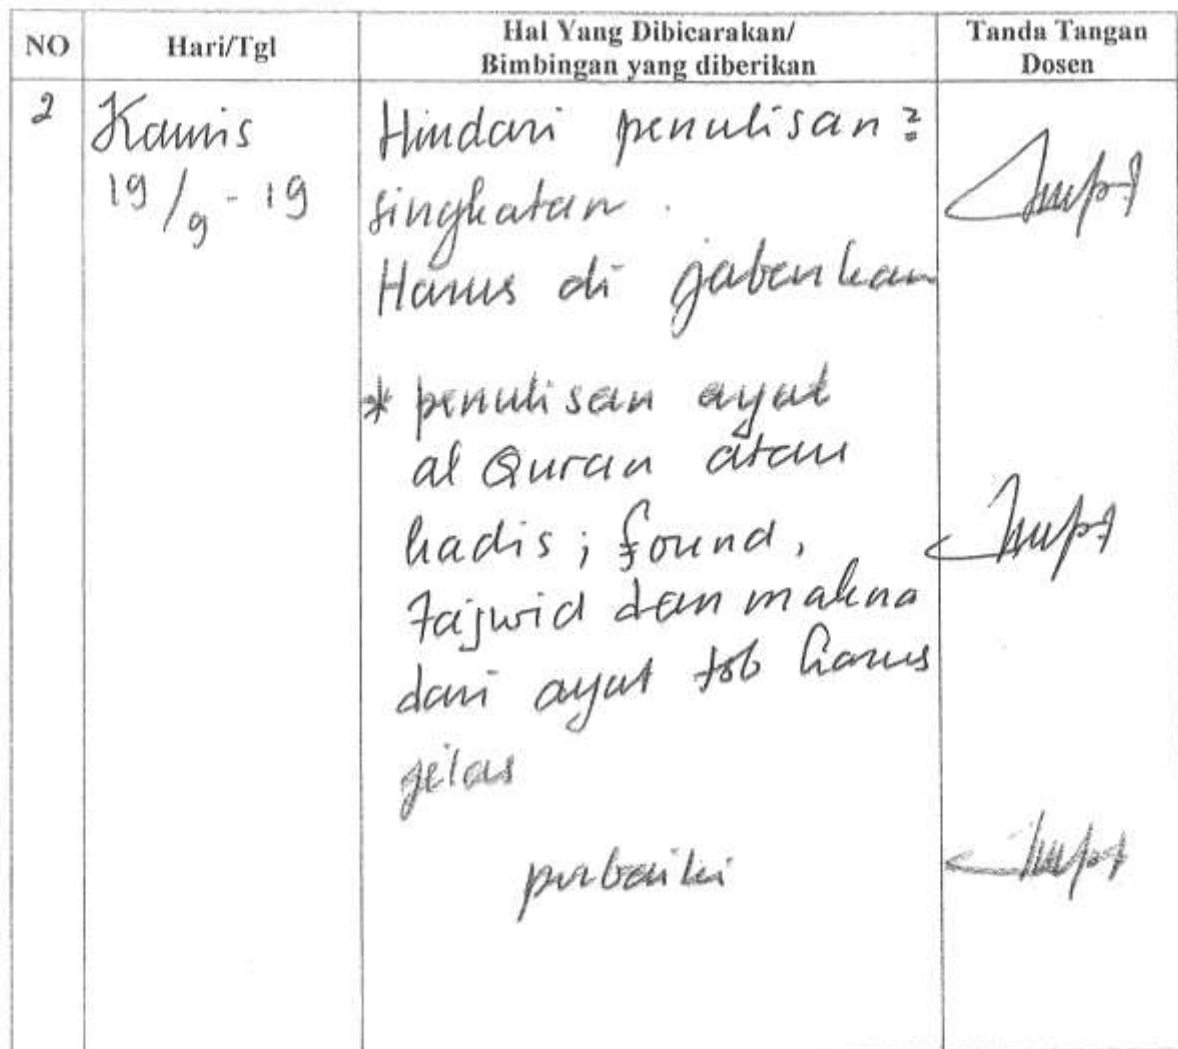 NO
Hari/Tgl
Hal Yang Dibicarakan/
Bimbingan yang diberikan
Tanda Tangan
Dosen
2
Kamis
19/9-19
Hindari penulisan2
singkatan.
Harus di jabarkan
* penulisan ayat
al Quran atau
hadis; found,
Tajwid dan makna
dari ayat tsb harus
jelas
perbaiki